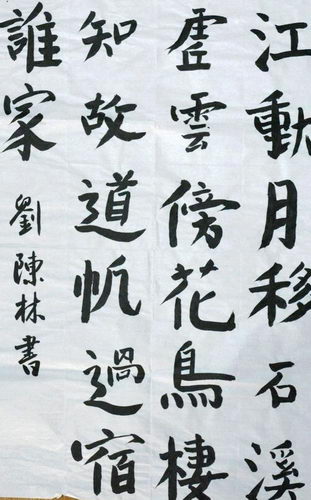 江動月移石溪
虛雲傍花鳥棲
知故道帆過宿
誰家
劉陳林書